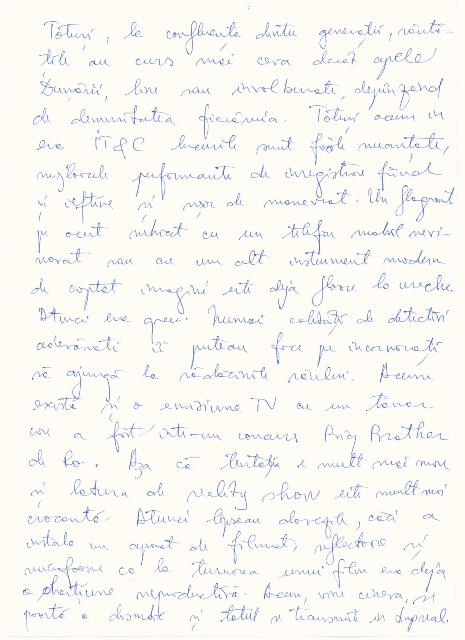 Totuși, la confluența dintre generații, răută-
țile au curs mai ceva decât apele
Dunării, line sau învolburate, depinzând
de demnitatea fiecăruia. Totuși acum în
era IT&C lucrurile sunt foarte nuanțate,
mijloacele performante de înregistrare fiind
și ieftine și ușor de manevrat. Un flagrant
pe acest subiect cu un telefon mobil nevi-
novat sau cu un alt instrument modern
de captat imagini este deja floare la ureche.
Atunci era greu. Numai calități de detectivi
adevărați îi puteau face pe încornorați
să ajungă la rădăcinile răului. Acum
există și o emisiune TV cu un tânăr
care a fost într-un concurs Big Brother
de Ro. Așa că tentația e mult mai mare
și latura de reality show este mult mai
crocantă. Atunci lipseau dovezile, căci a
instala un aparat de filmat, reflectoare și
microfoane ca la turnarea unui film era deja
o chestiune neproductivă. Acum, vine cineva, se
poartă o discuție și totul se transmite în direct.